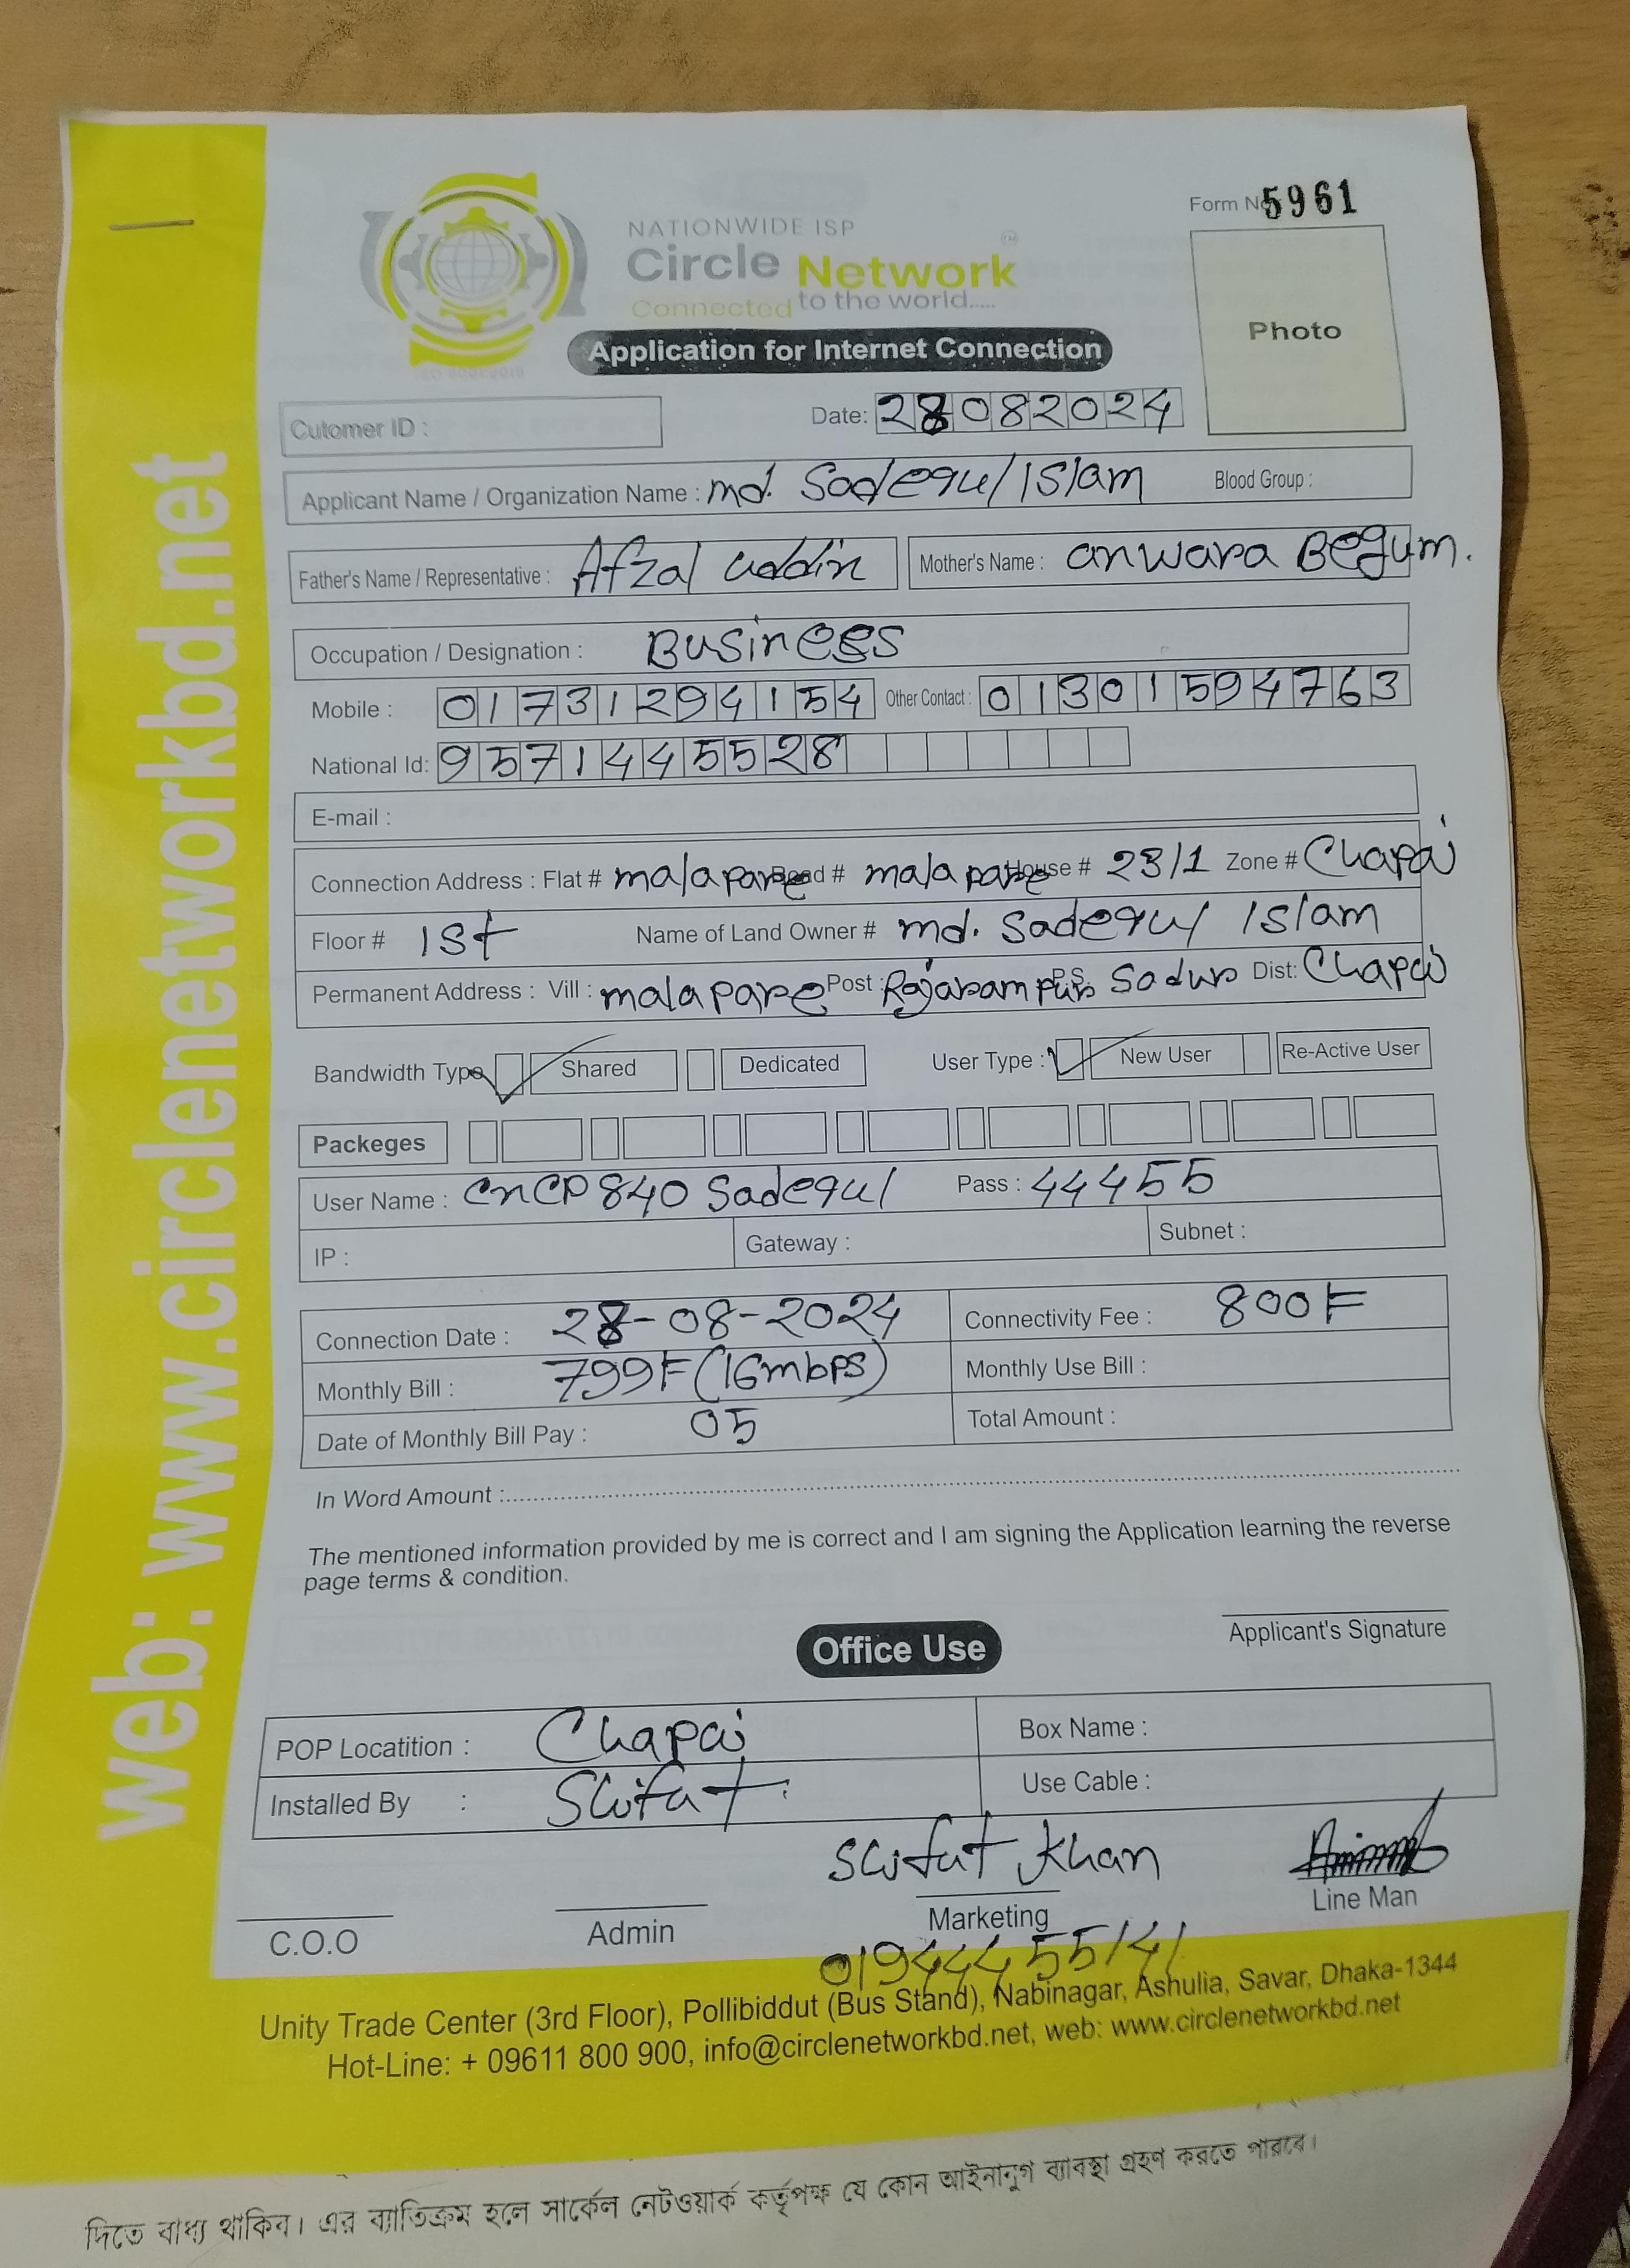 web: www.circlenetworkbd.net
Form No 5961
NATIONWIDE ISP
Circle Network
TM
Connected to the world.....
Application for Internet Connection
Photo
Cutomer ID :
Date: 28082024
Applicant Name / Organization Name : md. Sadequl Islam Blood Group :
Father's Name / Representative : Afzal uddin Mother's Name : anwara Begum.
Occupation / Designation : Business
Mobile : 01731294154 Other Contact : 01301594763
National Id: 9571445528
E-mail :
Connection Address : Flat # malapare Road # malapare House # 23/1 Zone # Chapai
Floor # 1st Name of Land Owner # md. Sadequl Islam
Permanent Address : Vill : malapare Post : Rajarampur P.S. Sadur Dist: Chapai
Bandwidth Type Shared Dedicated User Type : New User Re-Active User
Packeges
User Name : CnCP840 Sadequl Pass : 44455
IP : Gateway : Subnet :
Connection Date : 28-08-2024 Connectivity Fee : 800F
Monthly Bill : 799F (16mbps) Monthly Use Bill :
Date of Monthly Bill Pay : 05 Total Amount :
In Word Amount :
The mentioned information provided by me is correct and I am signing the Application learning the reverse
page terms & condition.
Applicant's Signature
Office Use
POP Locatition : Chapai Box Name :
Installed By : Shifat Use Cable :
Shifat Khan
C.O.O Admin Marketing Line Man
01944455141
Unity Trade Center (3rd Floor), Pollibiddut (Bus Stand), Nabinagar, Ashulia, Savar, Dhaka-1344
Hot-Line: + 09611 800 900, info@circlenetworkbd.net, web: www.circlenetworkbd.net
দিতে বাধ্য থাকিব। এর ব্যাতিক্রম হলে সার্কেল নেটওয়ার্ক কর্তৃপক্ষ যে কোন আইনানুগ ব্যাবস্থা গ্রহণ করতে পারবে।